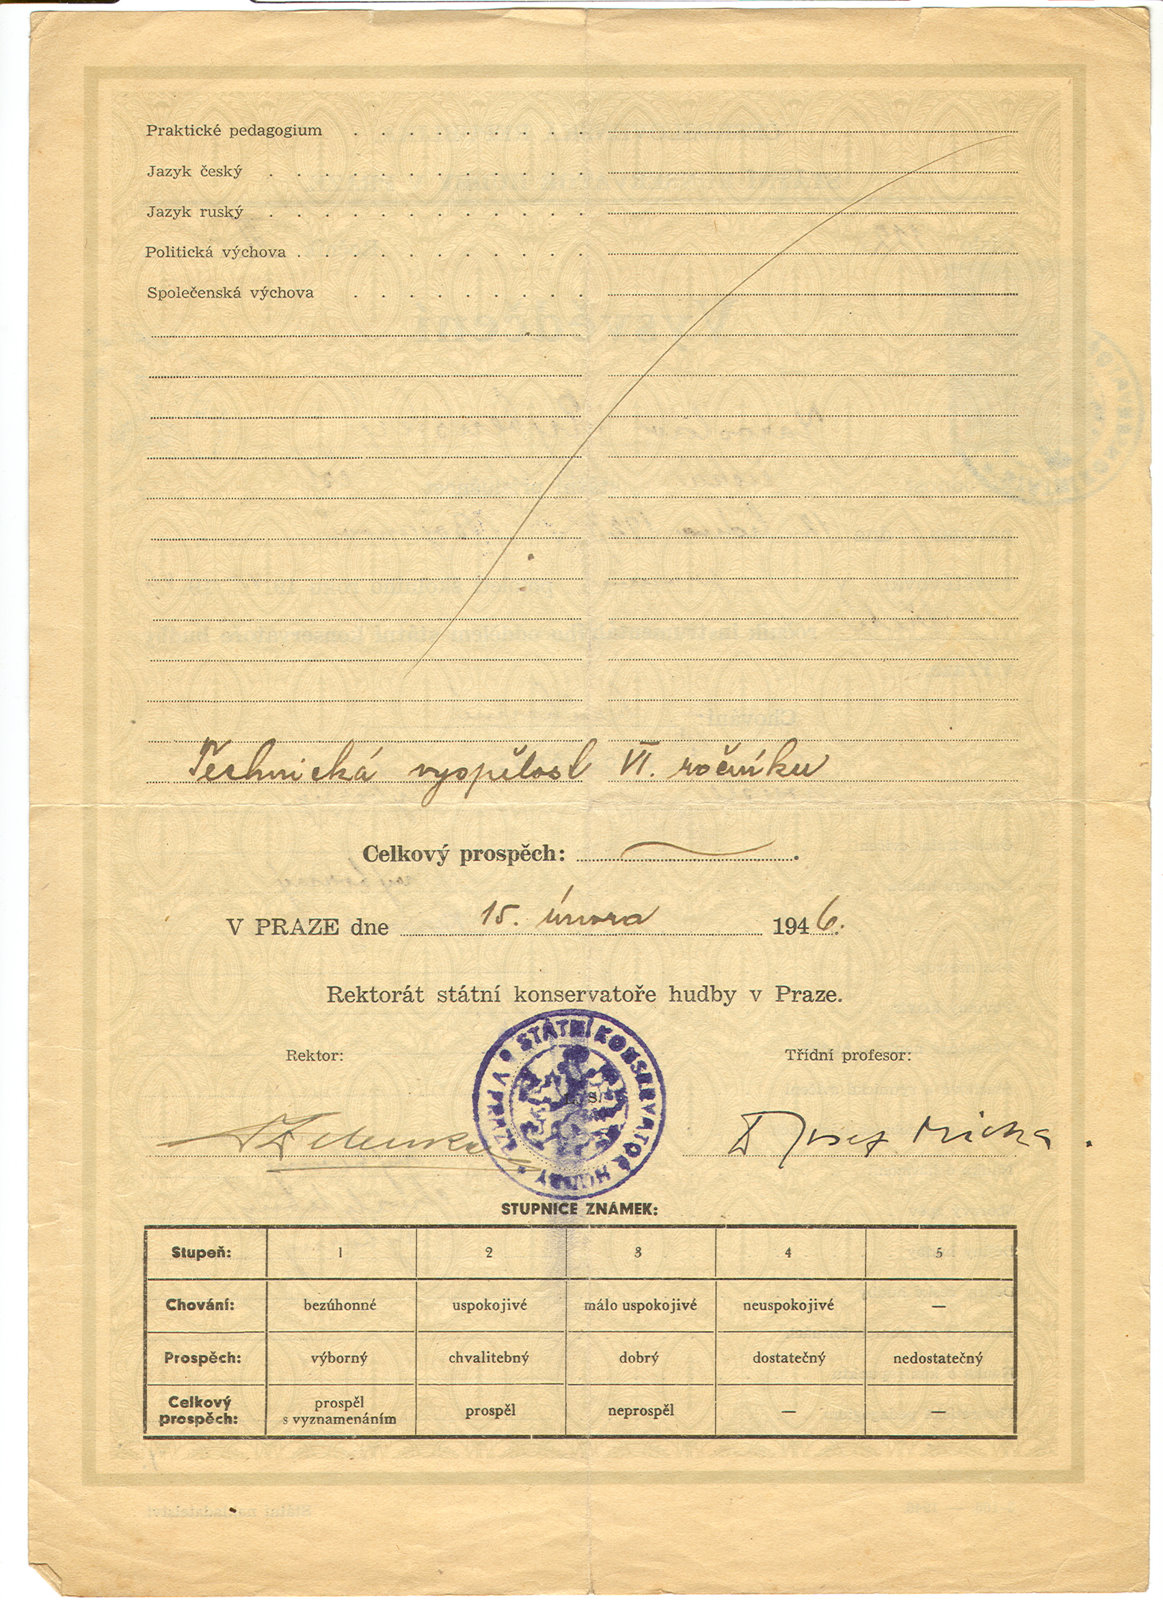 Praktické pedagogium
Jazyk český
Jazyk ruský
Politická výchova
Společenská výchova
Technická vyspělost VI. ročníku
Celkový prospěch:
V PRAZE dne 15. února 1946.
Rektorát státní konservatoře hudby v Praze.
Rektor: Třídní profesor:
STÁTNÍ KONSERVATOŘ HUDBY V PRAZE
Josef Micka
STUPNICE ZNÁMEK:
Stupeň: 1 2 3 4 5
Chování: bezúhonné uspokojivé málo uspokojivé neuspokojivé —
Prospěch: výborný chvalitebný dobrý dostatečný nedostatečný
Celkový prospěch: prospěl s vyznamenáním prospěl neprospěl — —